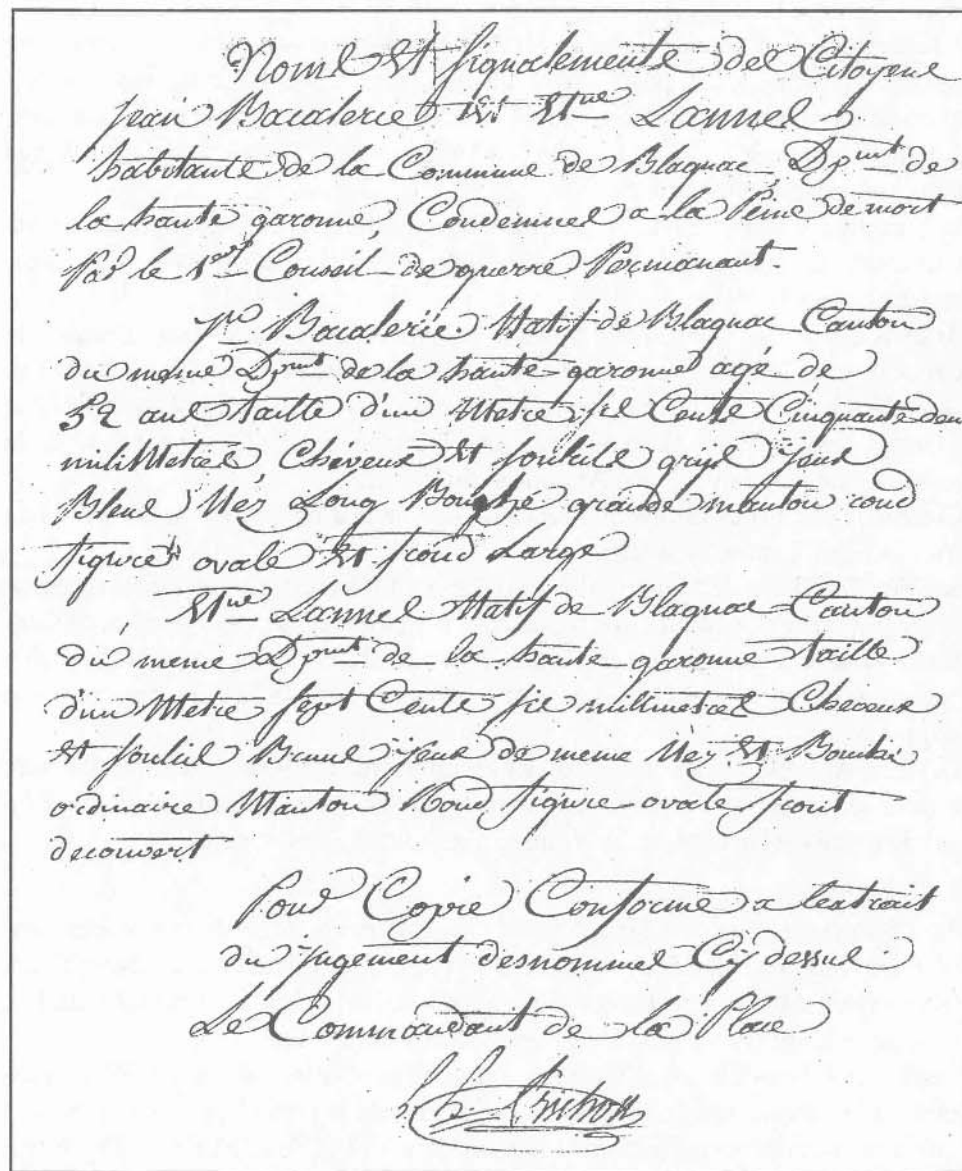 Noms Et signalements des Citoyens
jean Bacalerie Et Et.ne Lannes
habitants de la Commune de Blagnac, Dpmt de
la haute garonne, Condemnes a la Peine de mort
Par le 1er Conseil de guerre Permanant.
Bacalerie Natif de Blagnac Canton
du meme Dpmt de la haute garonne agé de
52 ans taille d'un Metre six Cents Cinquante deux
miliMetres, Cheveux Et soucils gris yeux
Bleus Néz Long Bouche grande manton rond
figure ovale Et front Large
Et.ne Lannes Natif de Blagnac Canton
du meme Dpmt de la haute garonne taille
d'un Metre sept Cents six millimetres Cheveux
Et soucil Bruns yeux de meme Nez Et Bouche
ordinaire Manton Rond figure ovale front
decouvert
Pour Copie Conforme a lextrait
du jugement desnommes Cy dessus
Le Commandant de la Place